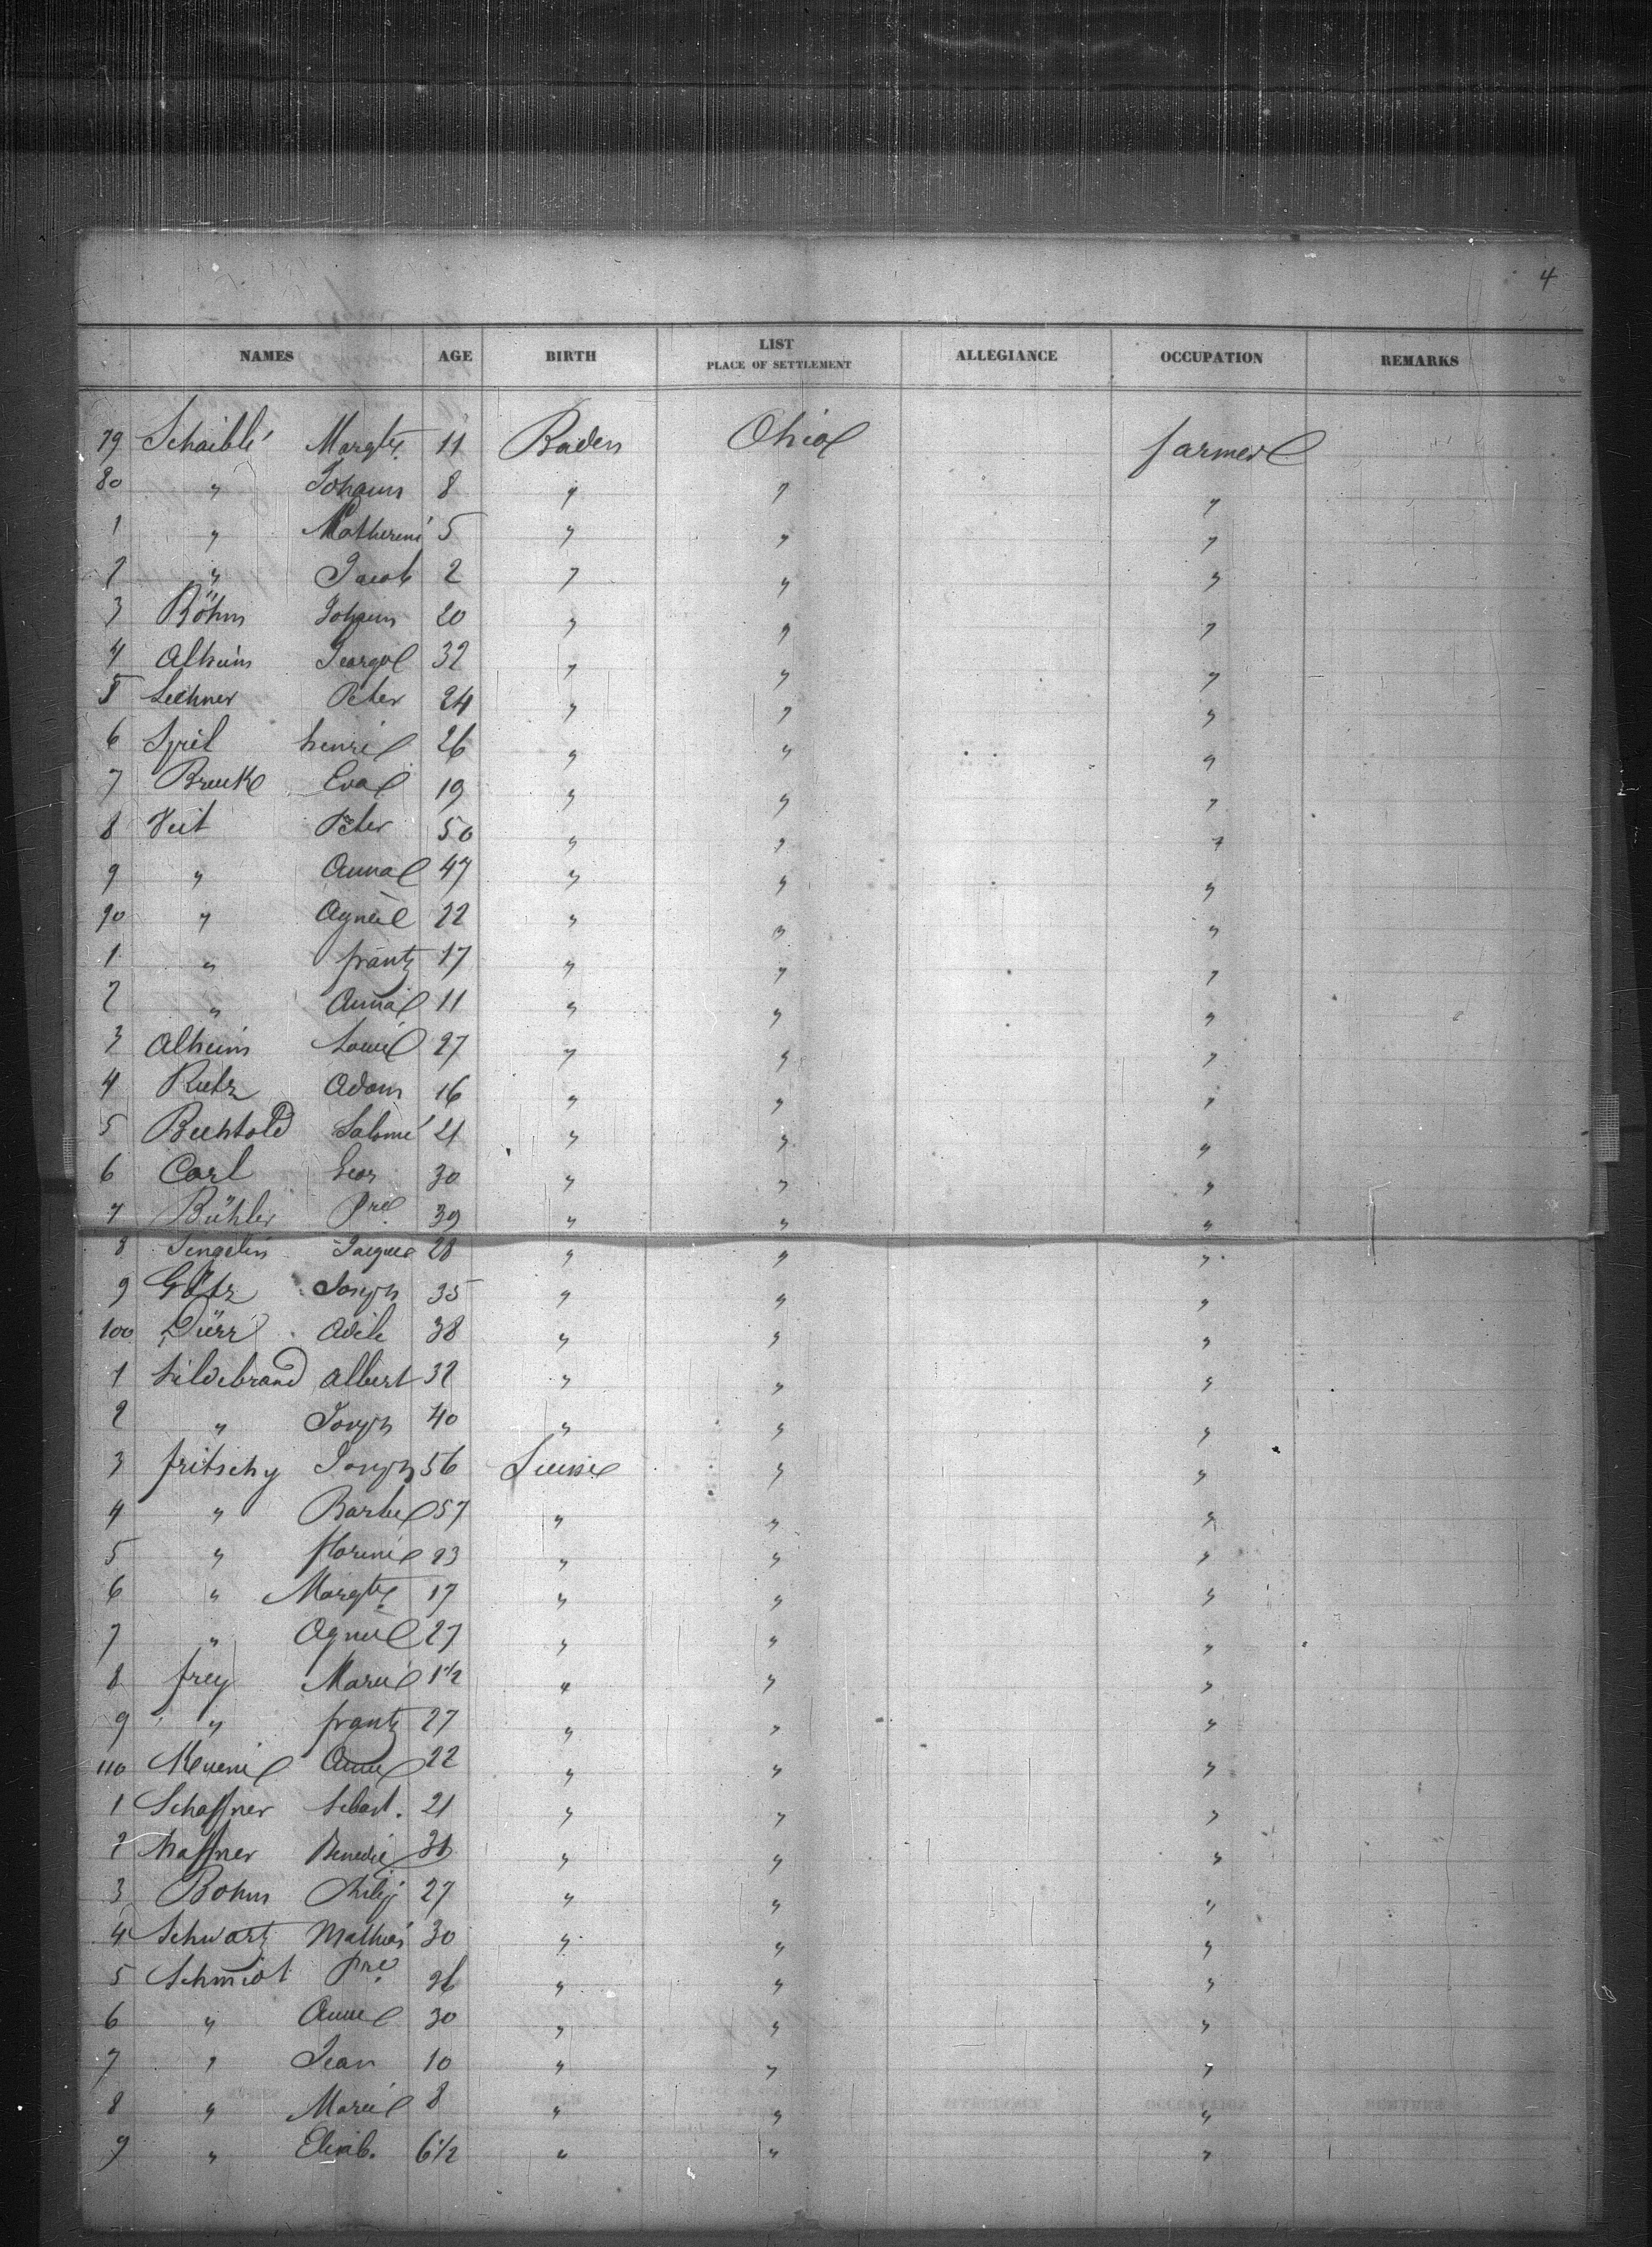 4
NAMES AGE BIRTH LIST PLACE OF SETTLEMENT ALLEGIANCE OCCUPATION REMARKS
79 Schaible Margte 11 Baden Ohio farmer
80 " Johann 8 " " "
1 " Katherine 5 " " "
2 " Jacob 2 " " "
3 Böhm Johann 20 " " "
4 Alheim George 32 " " "
5 Lechner Peter 24 " " "
6 henri 26 " " "
7 Eva 19 " " "
8 Veit Peter 50 " " "
9 " Anna 47 " " "
90 " Agnes 22 " " "
1 " frantz 17 " " "
2 " Anna 11 " " "
3 Alheim Louis 27 " " "
4 Rutz Adam 16 " " "
5 Bechtold Salome 21 " " "
6 Carl Geor 30 " " "
7 Bühler Pre 39 " " "
8 Jacques 28 " " "
9 Götz Joseph 35 " " "
100 Dürr 38 " " "
1 hildebrand Albert 32 " " "
2 " Joseph 40 " " "
3 fritschy Joseph 56 Suisse " "
4 " Barbe 57 " " "
5 " florine 23 " " "
6 " Margte 17 " " "
7 " Agnes 27 " " "
8 frey Marie 1 1/2 " " "
9 " frantz 27 " " "
110 Anne 22 " " "
1 Schaffner Sebast. 21 " " "
2 haffner 31 " " "
3 Bohm Philip 27 " " "
4 Schwartz Mathias 30 " " "
5 Schmidt Pre 36 " " "
6 " Anne 30 " " "
7 " Jean 10 " " "
8 " Marie 8 " " "
9 " Elisab. 6 1/2 " " "